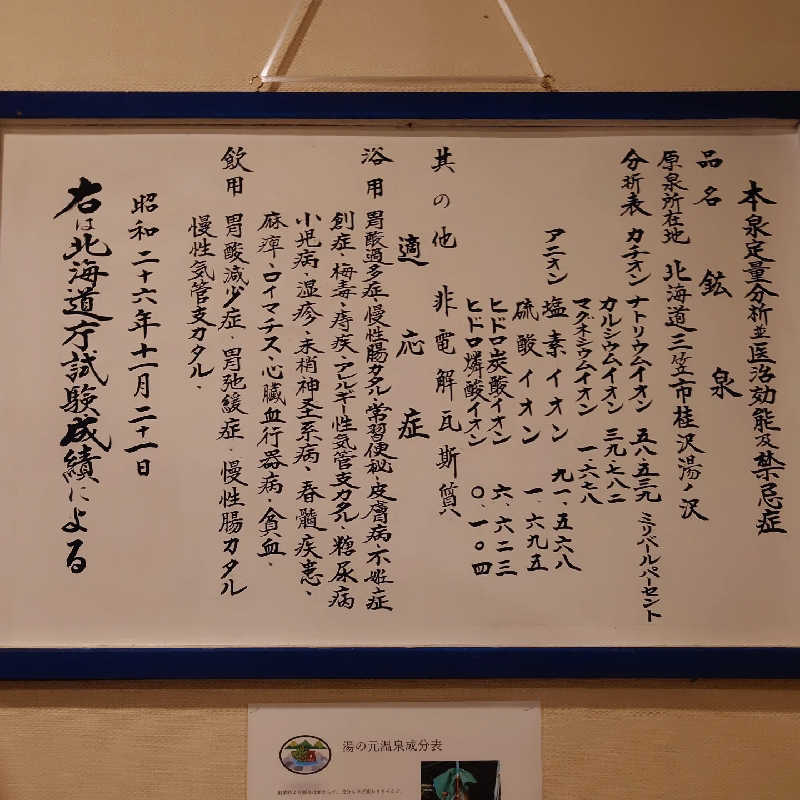 本泉定量分析並医治効能及禁忌症
品名 鉱泉
原泉所在地 北海道三笠市桂沢湯ノ沢
分析表 カチオン ナトリウムイオン 五八・五三九 ミリバールパーセント
カルシウムイオン 三九・七八二
マグネシウムイオン 一・六七八
アニオン 塩素イオン 九一・五六八
硫酸イオン 一・六九五
ヒドロ炭酸イオン 六・六二三
ヒドロ燐酸イオン 〇・一〇四
其の他 非電解瓦斯質
適応症
浴用 胃酸過多症、慢性腸カタル、常習便秘、皮膚病、不姙症
創症、梅毒、痔疾、アレルギー性気管支カタル、糖尿病
小児病、湿疹、末梢神圣系病、脊髄疾患、
麻痺、ロイマチス、心臓血行器病、貧血、
飲用 胃酸減少症、胃弛緩症、慢性腸カタル
慢性気管支カタル、
昭和二十六年十一月二十一日
右は北海道庁試験成績による
湯の元温泉成分表